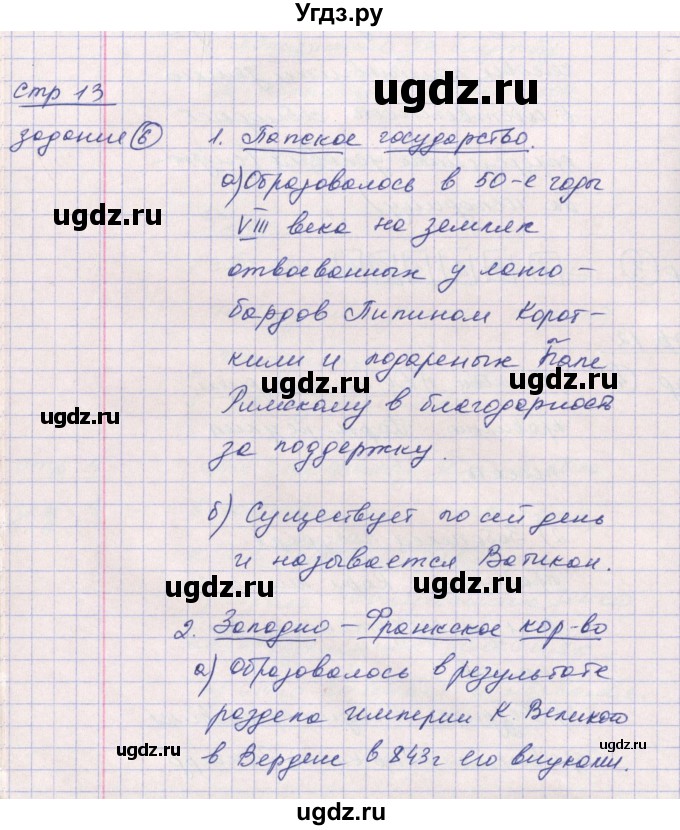 Угдз.ру
стр 13
ugdz.ru
задание 6
1. Папское государство.
а) Образовалось в 50-е годы
ugdz.ru
VIII века на землях
отвоеванных у ланго-
бардов Пипином Корот-
ким и подареных Папе
ugdz.ru
ugdz.ru
ugdz.ru
Римскому в благодарность
за поддержку.
б) Существует по сей день
и называется Ватикан.
ugdz.ru
ugdz.ru
2. Западно-Франкское кор-во
а) Образовалось в результате
раздела империи К. Великого
ugdz.ru
ugdz.ru
в Вердене в 843г его внуками.
ugdz.ru